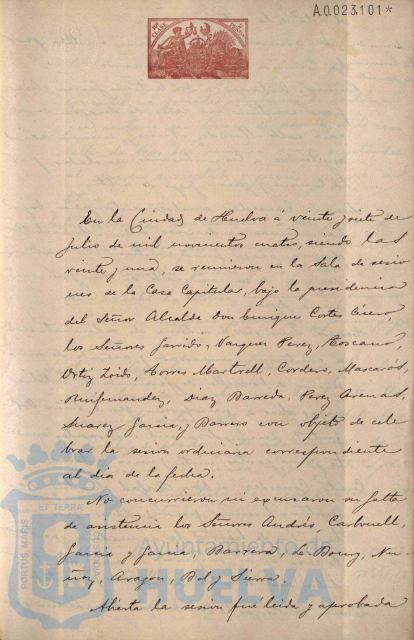 A.0.023,101*
En la Ciudad de Huelva á veinte y siete de
Julio de mil novecientos cuatro, siendo las
veinte y una, se reunieron en la Sala de sesio
nes de la Casa Capitular, bajo la presidencia
del Señor Alcalde Don Enrique Cortes Cícero
los Señores Garrido, Vazquez Perez, Toscano,
Ortiz Zeido, Torres Martrell, Cordero, Mascarós,
Ruifernandez, Diaz Barreda, Perez Arenas,
Suarez Garcia, y Barrero con objeto de cele
brar la sesion ordinaria correspondiente
al dia de la fecha.
No concurrieron ni excusaron su falta
de asistencia los Señores Andrés, Carbonell,
Garcia y Garcia, Barrera, Le Bourg, Nu-
ñez, Aragon, Bel y Sierra.
Abierta la sesion fue leida y aprobada
PORTUS MARIS
ET TERRAE
Ayuntamiento de
HUELVA